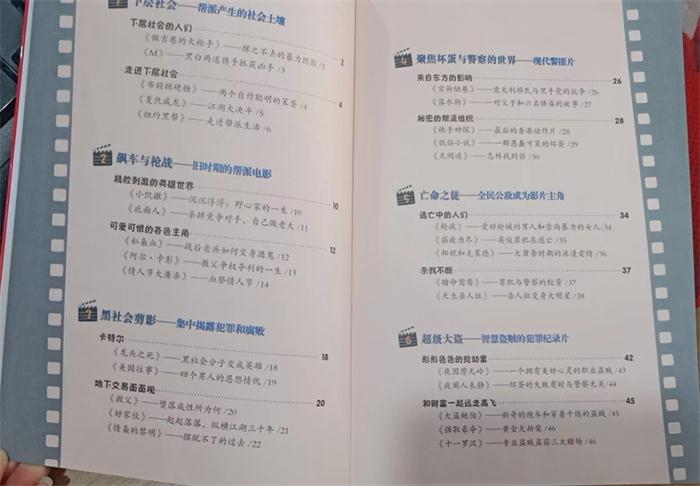 1 下层社会——帮派产生的社会土壤
下层社会的人们 2
《佩吉巷的火枪手》——挥之不去的暴力搭影/2
《M》——黑白两道携手抓获凶手/3
走进下层社会 4
《布赖顿硬糖》——两个自作聪明的笨蛋/4
《复仇威龙》——江湖大决斗/5
《纽约黑帮》——走进帮派生活/6
2 飙车与枪战——旧时期的帮派电影
精脸刺激的英雄世界 10
《小凯撒》——沉沉浮浮:野心家的一生/10
《疤面人》——杀掉竞争对手,自己做老大/11
可爱可恨的各色主角 12
《私枭血》——战后老兵如何变身酒鬼/12
《阿尔·卡彭》——教父争权夺利的一生/13
《情人节大屠杀》——血祭情人节/14
3 黑社会剪影——集中揭露犯罪和腐败
卡特尔 18
《龙头之死》——黑社会分子变成英雄/18
《美国往事》——四个男人的恩怨情仇/19
地下交易面面观 20
《教父》——堕落成性所为何/20
《好家伙》——起起落落,纵横江湖三十年/21
《情枭的黎明》——摆脱不了的过去/22
4 聚焦坏蛋与警察的世界——现代警匪片
来自东方的影响 26
《穷街陋巷》——意大利移民与黑手党的抗争/26
《落水狗》——对父子和六名强盗的故事/27
秘密的帮派组织 28
《辣手神探》——最后的香港动作片/28
《低俗小说》——一群愚蠢可笑的坏蛋/29
《无间道》——怎样找到你/30
5 亡命之徒——全民公敌成为影片主角
逃亡中的人们 34
《枪疯》——爱好枪械的男人和崇尚暴力的女人/34
《筋疲力尽》——英俊罪犯在逃亡/35
《邦妮和克莱德》——大萧条时期的浪漫爱情/36
杀戮不断 37
《赌命鸳鸯》——罪犯与警察的较量/37
《天生杀人狂》——杀人狂变身大明星/38
6 超级大盗——智慧盗贼的犯罪纪录片
形形色色的抢劫案 42
《夜困摩天岭》——一个拥有美好心灵的职业盗贼/43
《夜阑人未静》——坏蛋的失败有时与警察无关/44
和财富一起远走高飞 45
《大盗鲍伯》——新奇的跑车和穿着干练的盗贼/45
《强取豪夺》——黄金大劫案/46
《十一罗汉》——专业盗贼盗窃三大赌场/46